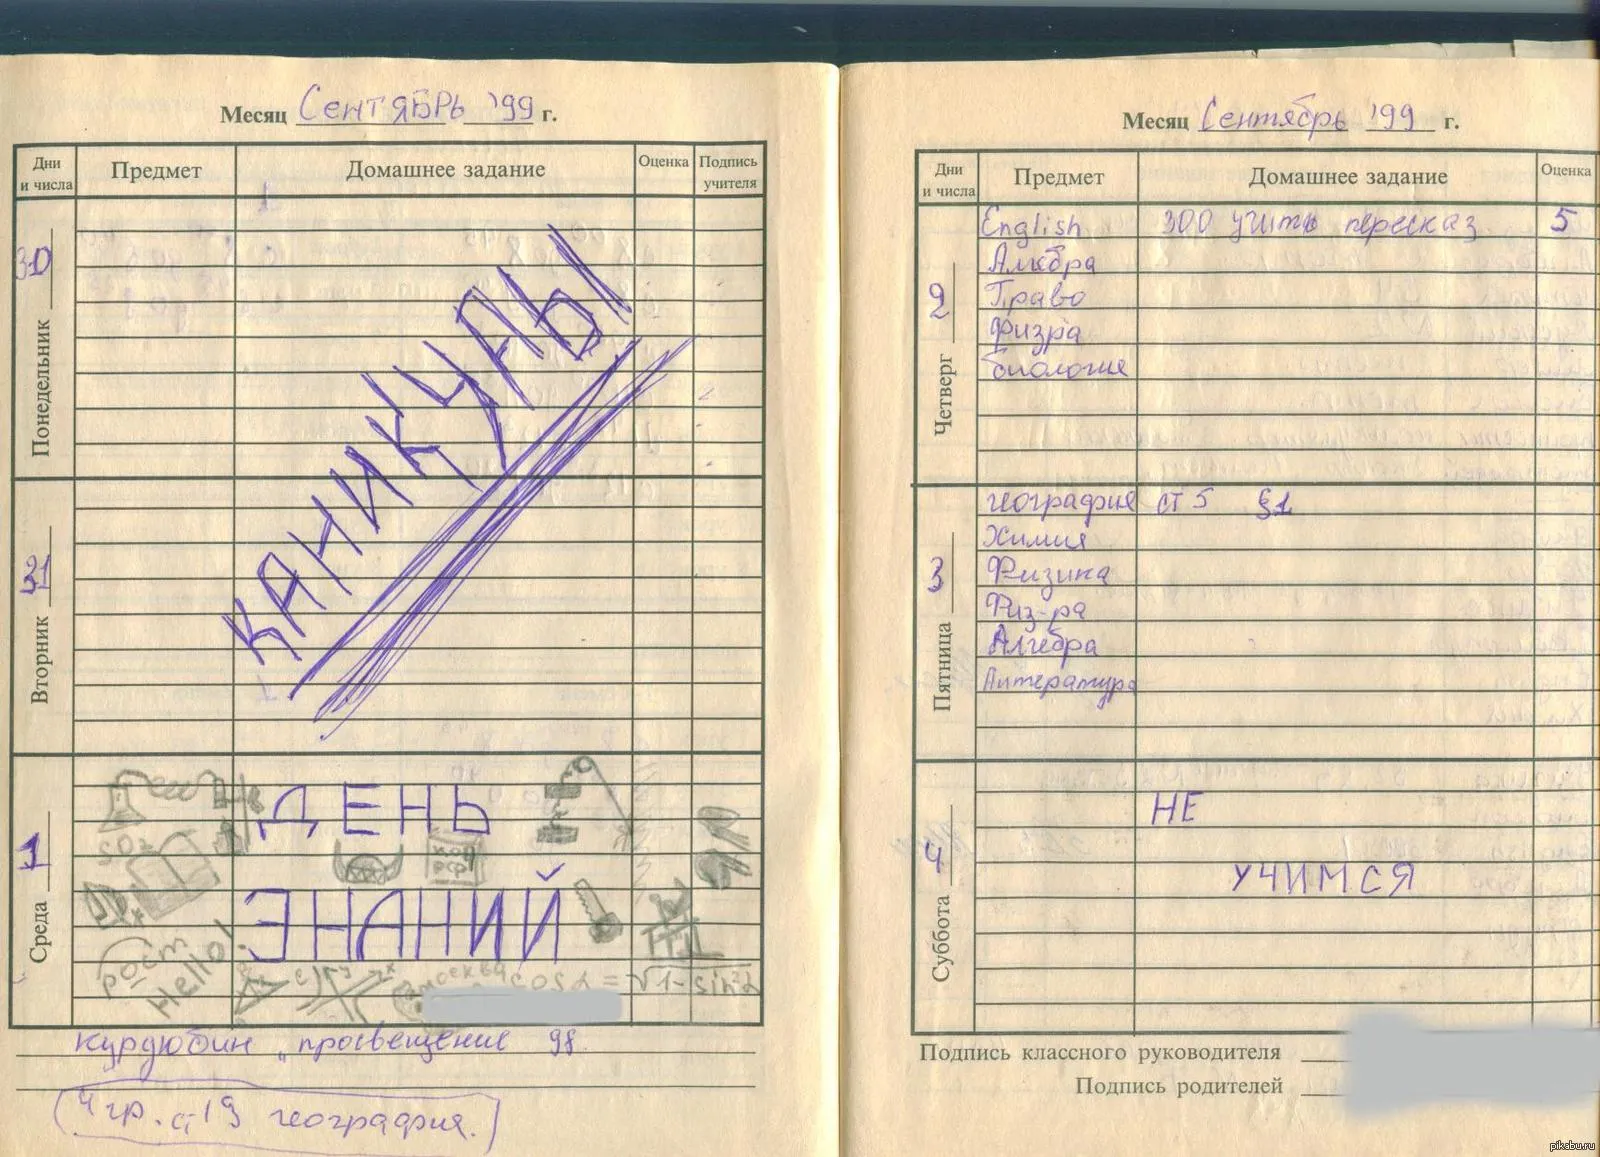 Месяц СЕНТЯБРЬ '99 г.
Дни и числа Предмет Домашнее задание Оценка Подпись учителя
Понедельник 30
КАНИКУЛЫ
Вторник 31
Среда 1
ДЕНЬ
SO2
КОД РФ
ЗНАНИЙ
рост Hello! москва cos α = √1- sin²α
"просвещение 98.
4 гр. ст 19 география.
Месяц Сентябрь '99 г.
Дни и числа Предмет Домашнее задание Оценка
Четверг 2
English 300 учить пересказ 5
Алгебра
Право
Физра
Биология
Пятница 3
география ст 5 §1
Химия
Физика
Физ-ра
Алгебра
Литература
Суббота 4
НЕ
УЧИМСЯ
Подпись классного руководителя
Подпись родителей
pikabu.ru